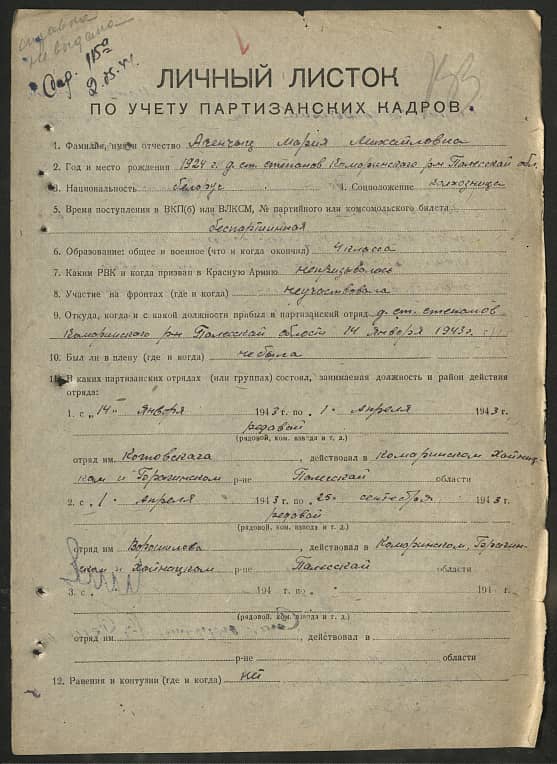 справка
не выдана
ЛИЧНЫЙ ЛИСТОК
ПО УЧЕТУ ПАРТИЗАНСКИХ КАДРОВ
1. Фамилия, имя и отчество Мария Михайловна
2. Год и место рождения 1924 г. д. ст. степанов Комаринского р-н Полесской обл.
3. Национальность белорус 4. Соцположение
5. Время поступления в ВКП(б) или ВЛКСМ, № партийного или комсомольского билета
беспартийная
6. Образование: общее и военное (что и когда окончил) 4 класса
7. Каким РВК и когда призван в Красную Армию непризывалась
8. Участие на фронтах (где и когда) неучаствовала
9. Откуда, когда и с какой должности прибыл в партизанский отряд д. ст. степанов
Комаринского р-н Полесской области 14 января 1943 г.
10. Был ли в плену (где и когда) не была
11. В каких партизанских отрядах (или группах) состоял, занимаемая должность и район действия
отряда:
1. с „14" Января 1943 г. по „1" Апреля 1943 г.
редавой
(рядовой, ком. взвода и т. д.)
отряд им. Котовскага, действовал в Комаринском Хойниц-
ком и Брагинском р-не Полесской области
2. с „1" Апреля 1943 г. по „25" сентебря 1943 г.
редавой
(рядовой, ком. взвода и т. д.)
отряд им Ворошилова, действовал в Комаринском, Брагин-
ском и Хойницком р-не Полесской области
3. с „ 194 г. по „ 194 г.
(рядовой, ком. взвода и т. д.)
отряд им., действовал в
р-не области
12. Ранения и контузии (где и когда) нет